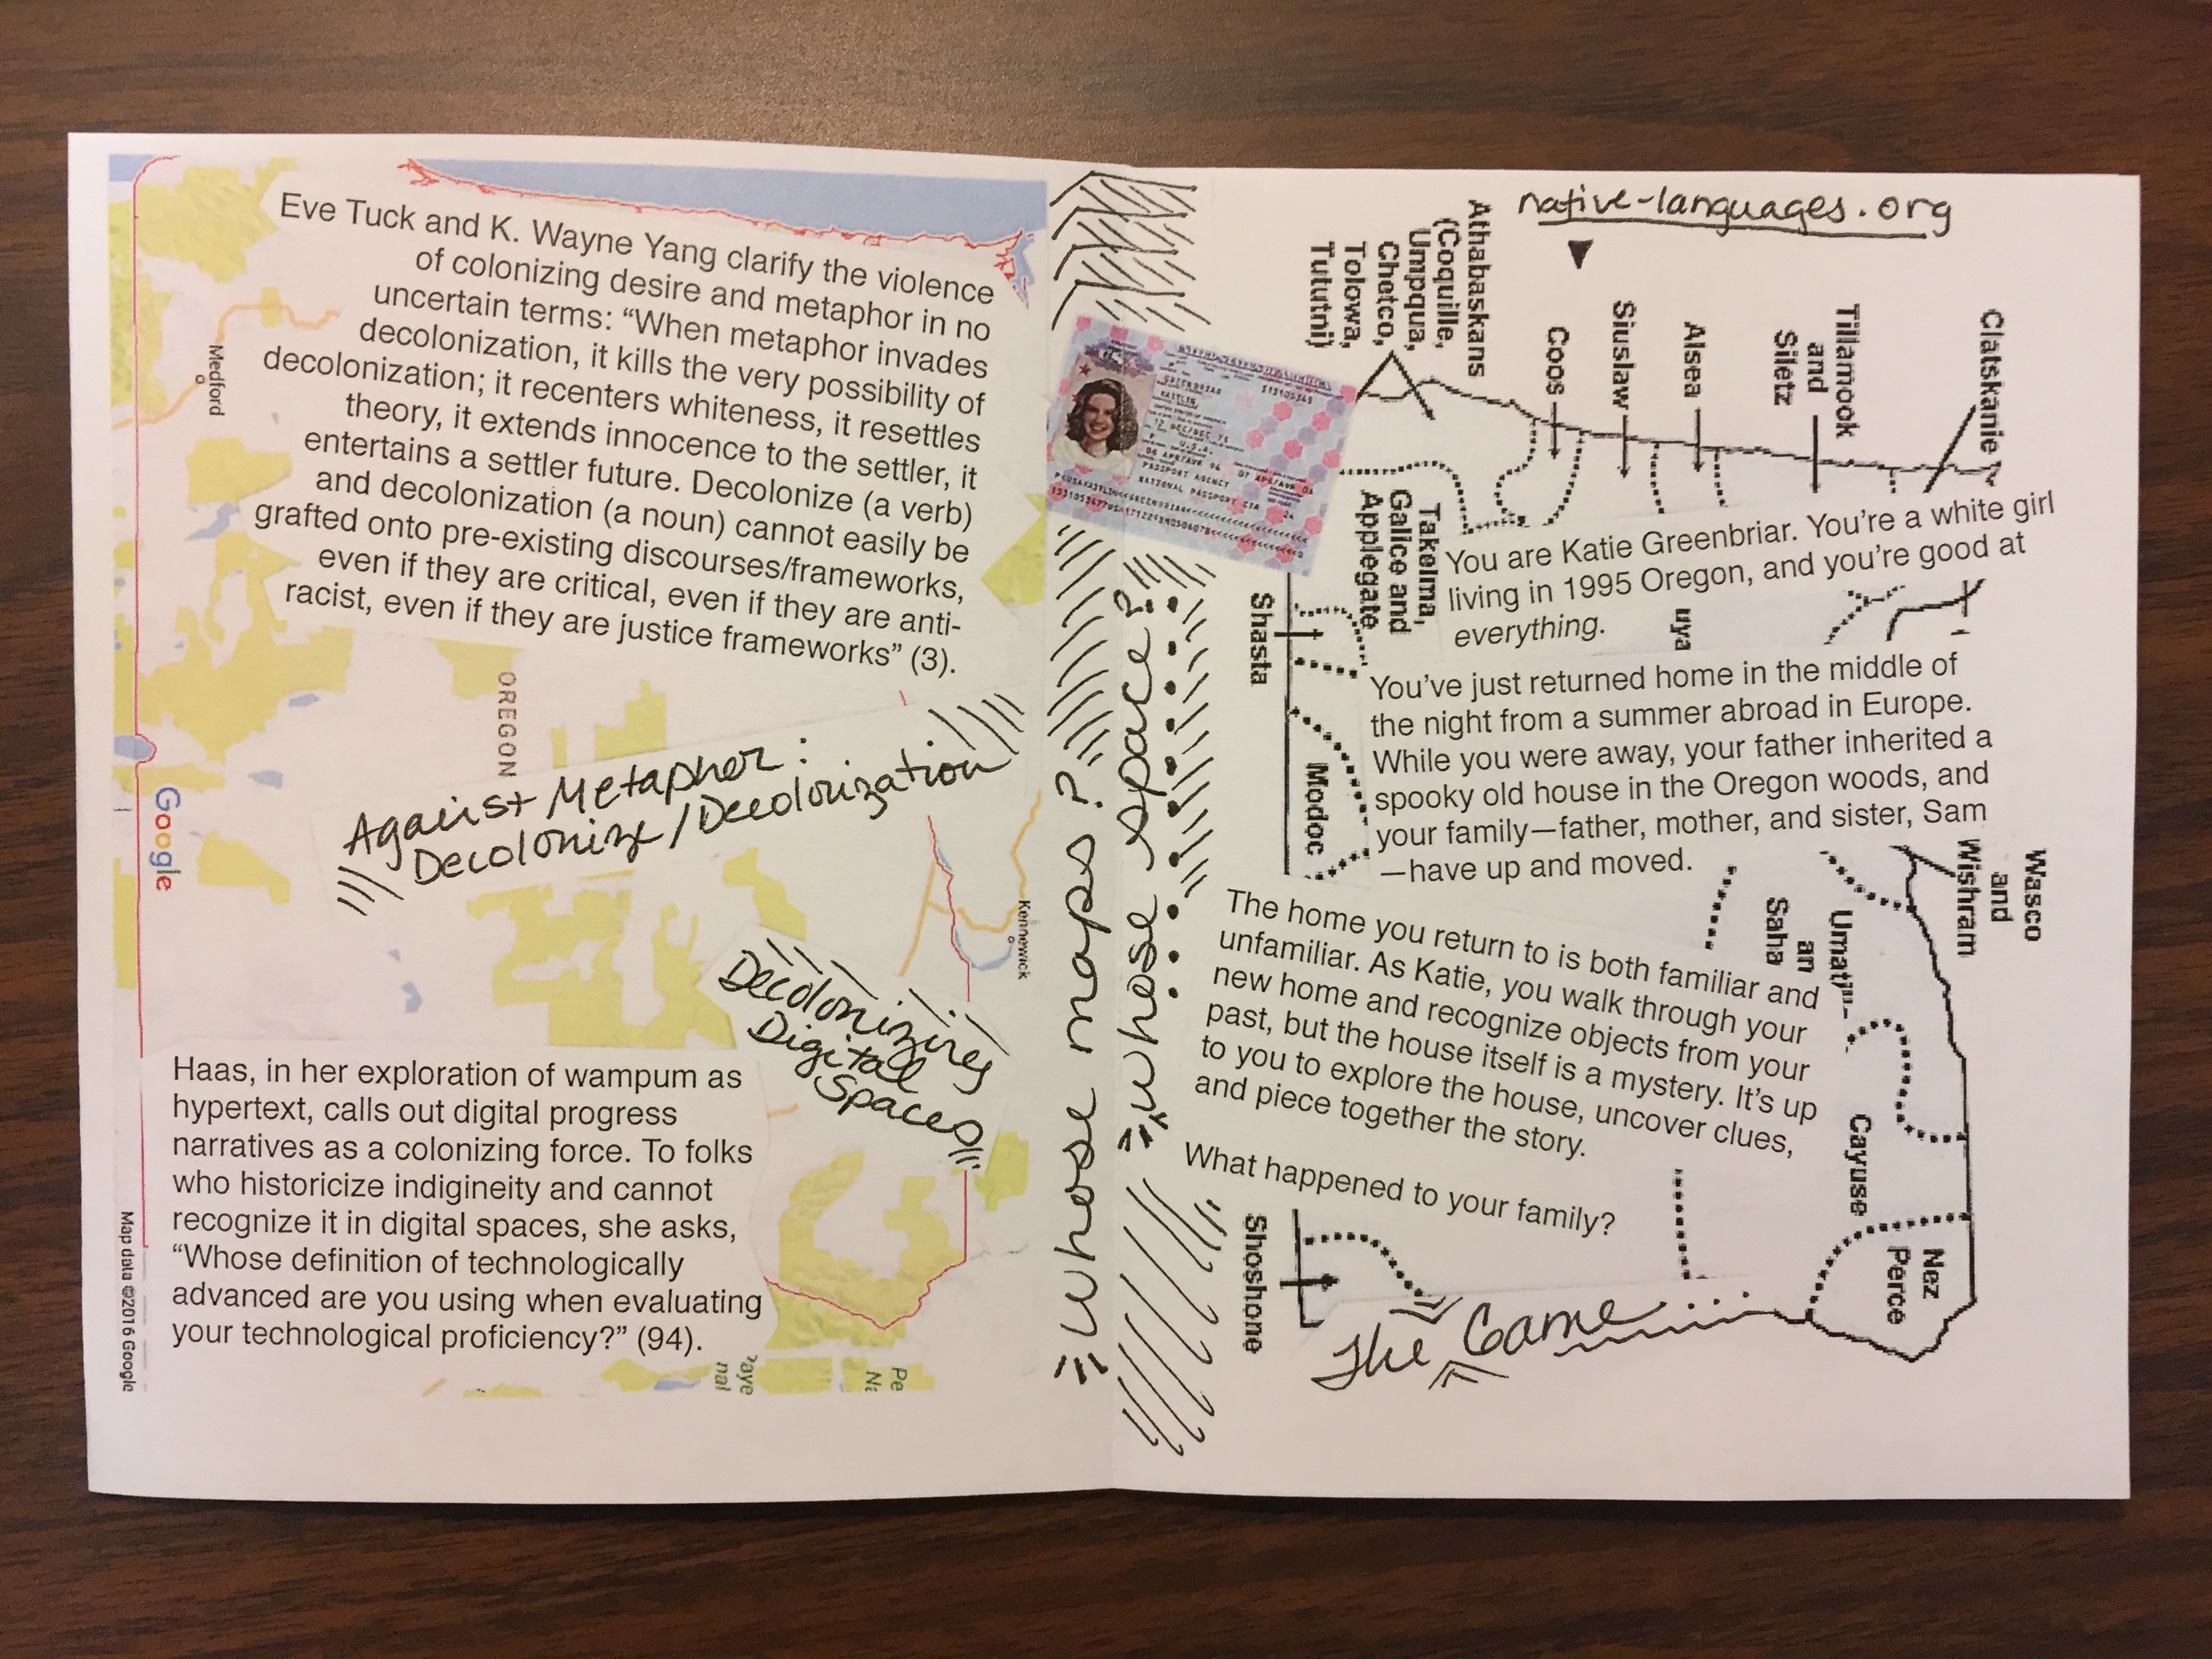 Eve Tuck and K. Wayne Yang clarify the violence
of colonizing desire and metaphor in no
uncertain terms: “When metaphor invades
decolonization, it kills the very possibility of
decolonization; it recenters whiteness, it resettles
theory, it extends innocence to the settler, it
entertains a settler future. Decolonize (a verb)
and decolonization (a noun) cannot easily be
grafted onto pre-existing discourses/frameworks,
even if they are critical, even if they are anti-
racist, even if they are justice frameworks” (3).
Medford
OREGON
Against Metaphor:
Decolonize/Decolonization
Google
Kennewick
Decolonizing
Digital
Spaces
Haas, in her exploration of wampum as
hypertext, calls out digital progress
narratives as a colonizing force. To folks
who historicize indigineity and cannot
recognize it in digital spaces, she asks,
“Whose definition of technologically
advanced are you using when evaluating
your technological proficiency?” (94).
Map data ©2016 Google
Whose maps?
Whose space?
native-languages.org
Athabaskans
(Coquille,
Umpqua,
Chetco,
Tolowa,
Tututni)
Coos
Siuslaw
Alsea
Tillamook
and
Siletz
Clatskanie
GREENBRIAR
KAITLIN
U.S.A.
PASSPORT AGENCY
Takelma,
Galice and
Applegate
Shasta
You are Katie Greenbriar. You’re a white girl
living in 1995 Oregon, and you’re good at
everything.
uya
You’ve just returned home in the middle of
the night from a summer abroad in Europe.
While you were away, your father inherited a
spooky old house in the Oregon woods, and
your family—father, mother, and sister, Sam
—have up and moved.
Modoc
Wasco
and
Wishram
Umatil-
Saha
an
The home you return to is both familiar and
unfamiliar. As Katie, you walk through your
new home and recognize objects from your
past, but the house itself is a mystery. It’s up
to you to explore the house, uncover clues,
and piece together the story.
What happened to your family?
Cayuse
Nez
Perce
Shoshone
The Game...